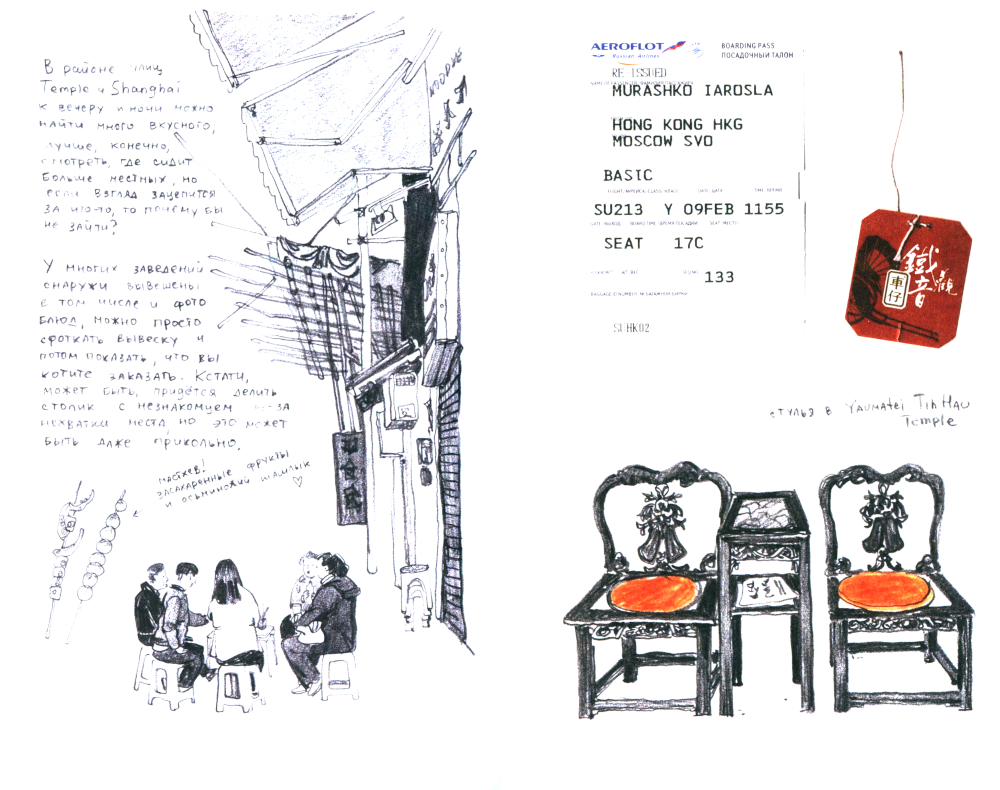 В районе улиц
Temple и Shanghai
к вечеру и ночи можно
найти много вкусного,
лучше, конечно,
смотреть, где сидит
больше местных, но
если взгляд зацепится
за что-то, то почему бы
не зайти?
У многих заведений
снаружи вывешены
в том числе и фото
блюд, можно просто
сфоткать вывеску и
потом показать, что вы
хотите заказать. Кстати,
может быть, придётся делить
столик с незнакомцем из-за
нехватки места, но это может
быть даже прикольно.
мастхев!
засахаренные фрукты
и осьминожий шашлык
NOODLE
AEROFLOT
Russian Airlines
BOARDING PASS
ПОСАДОЧНЫЙ ТАЛОН
RE ISSUED
MURASHKO IAROSLA
HONG KONG HKG
MOSCOW SVO
BASIC
SU213 Y 09FEB 1155
SEAT 17C
133
鐵觀音
車仔
стулья в Yaumatei Tin Hau
Temple